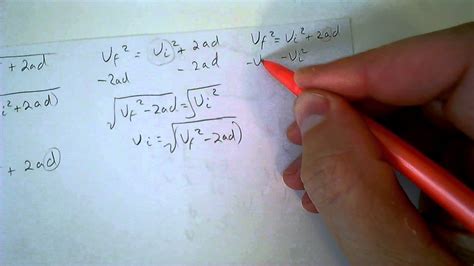 + 2ad
i² + 2ad)
+ 2ad
Vf² = Vi² + 2ad
-2ad - 2ad
√Vf² - 2ad = √Vi²
Vi = √Vf² - 2ad)
Vf² = Vi² + 2ad
-V - Vi²